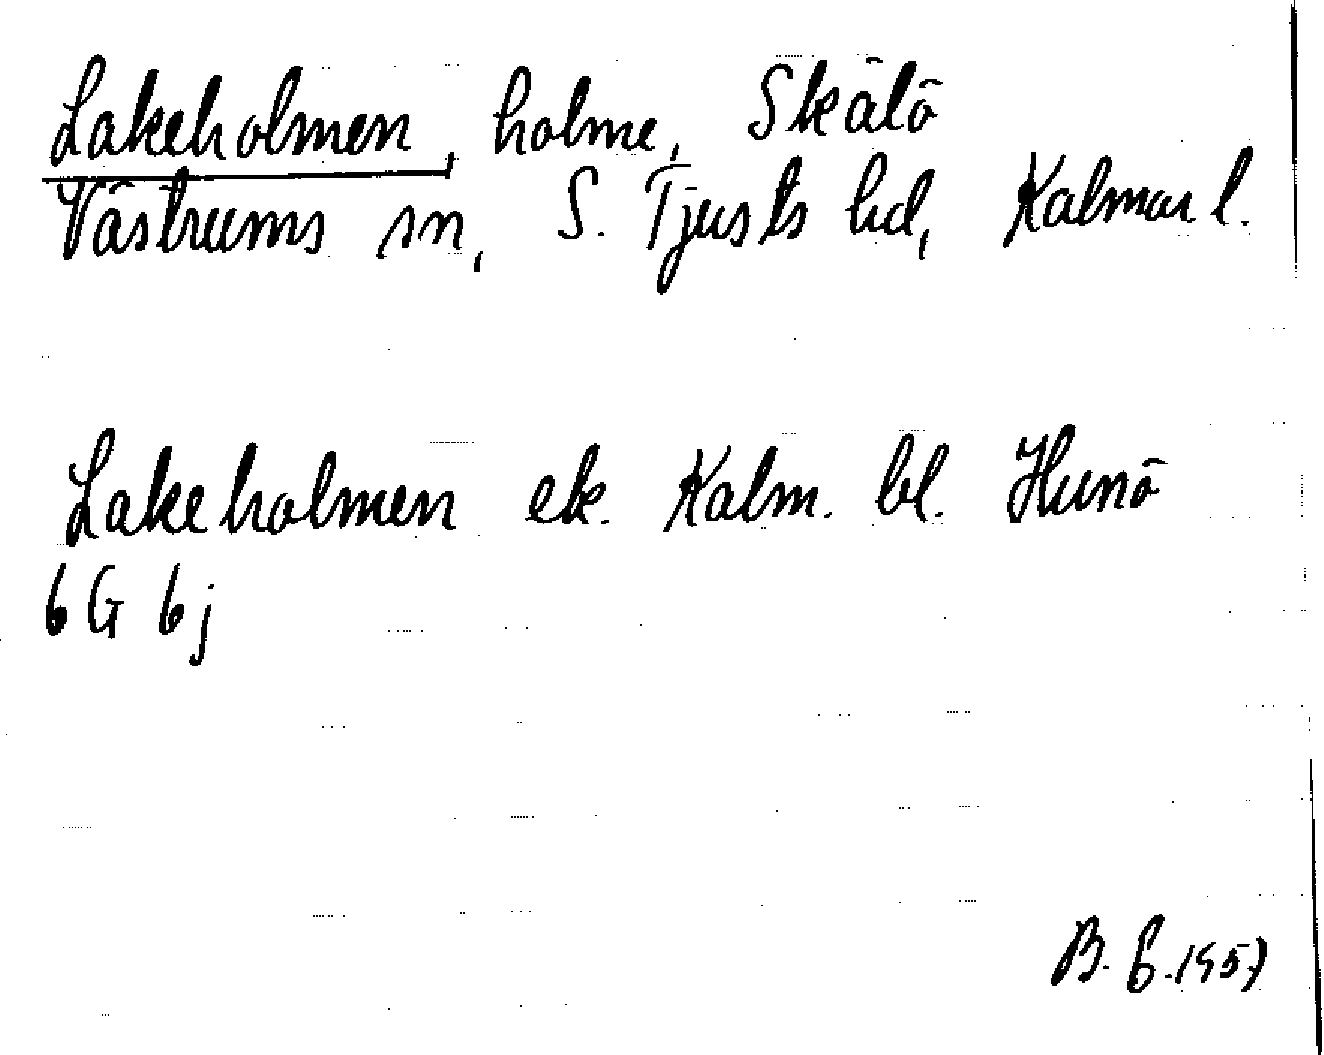 Lakeholmen, holme, Skälö
Västrums sn, S. Tjusts hd, Kalmar l.
Lakeholmen ek. Kalm. bl. Hunö
6G 6j
B. E. 1957